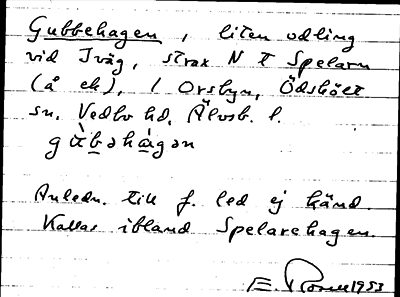 Gubbehagen, liten odling
vid Iväg, strax N t Spelarn
(å ek), i Orsbyn, Ödsbält
sn. Vedbo hd. Älvsb. l.
Anledn. till f. led ej känd.
Kallas ibland Spelarehagen.
E. 1953